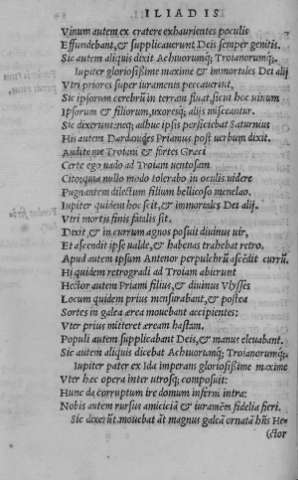 ILIADIS
Vinum autem ex cratere exhaurientes poculis
Effundebant, & supplicauerunt Deis semper genitis.
Sic autem aliquis dixit Achiuorumq; Troianorumq;.
Iupiter gloriosißime maxime & immortales Dei alij
Vtri priores super iuramenta peccauerint,
Sic ipsorum cerebrũ in terram fluat, sicut hoc uinum
Ipsorum & filiorum, uxoresq; alijs misceantur.
Sic dixerunt: neq; adhuc ipsis perficiebat Saturnius
His autem Dardanides Priamus post uerbum dixit.
Audite me Troiani & fortes Græci
Certe ego uado ad Troiam uentosam
Cito, quia nullo modo tolerabo in oculis uidere
Pugnantem dilectum filium bellicoso menelao.
Iupiter quidem hoc scit, & immortales Dei alij.
Vtri mortis finis fatalis sit.
Dixit, & in currum agnos posuit diuinus uir,
Et ascendit ipse ualde, & habenas trahebat retro.
Apud autem ipsum Antenor perpulchrũ ascēdit currũ.
Hi quidem retrogradi ad Troiam abierunt
Hector autem Priami filius, & diuinus Vlysses
Locum quidem prius mensurabant, & postea
Sortes in galea ærea mouebant accipientes:
Vter prius mitteret æream hastam.
Populi autem supplicabant Deis, & manus eleuabant.
Sic autem aliquis dicebat Achiuorumq; Troianorumq;.
Iupiter pater ex Ida imperans gloriosißime maxime
Vter hæc opera inter utrosq; composuit:
Hunc da corruptum ire domum inferni intra:
Nobis autem rursus amiciciã & iuramēta fidelia fieri.
Sic dixerũt. mouebat at magnus galeã ornata his He-
ctor